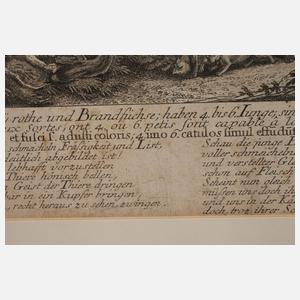 rothe und Brandfüchse, haben 4. bis 6. Junge, sin
ux Sortes, ont 4 ou 6 petis sont capable a
et fusci s. adusti coloris, 4 imo 6. catulos simul effudunt
schmächeln Fräsigkeit und List,
deütlich abgebildet ist!
lebhaffe vorzustellen
Thiere hönisch bellen,
Geist der Thiere dringen
bar in ein Kupfer bringen
recht heraus zu sehen, zwingen.
Schau die junge
voller schmeicheln
und verstellter
schon auf Fleisch
Scheint nun gleich
müssen uns doch
und uns in der
doch troz ihrer